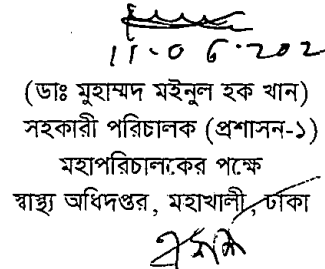 11.06.202
(ডাঃ মুহাম্মদ মইনুল হক খান)
সহকারী পরিচালক (প্রশাসন-১)
মহাপরিচালকের পক্ষে
স্বাস্থ্য অধিদপ্তর, মহাখালী, ঢাকা